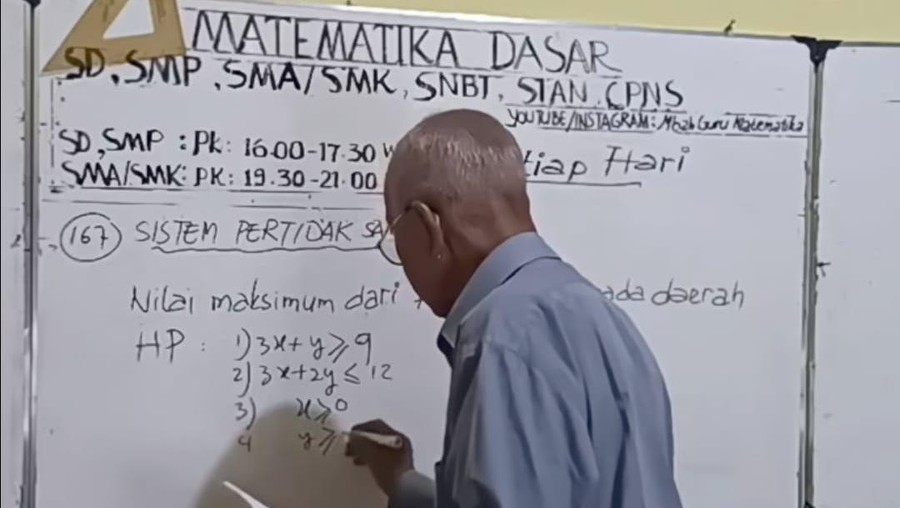 MATEMATIKA DASAR
SD, SMP, SMA/SMK, SNBT, STAN, CPNS
YOUTUBE/INSTAGRAM: Mbah Guru Matematika
SD, SMP : PK: 16.00-17.30
SMA/SMK: PK: 19.30-21.00 Hari
167 SISTEM PERTIDAK
Nilai maksimum dari daerah
HP : 1) 3x + y ≥ 9
2) 3x+2y ≤ 12
3) x ≥ 0
4 y ≥